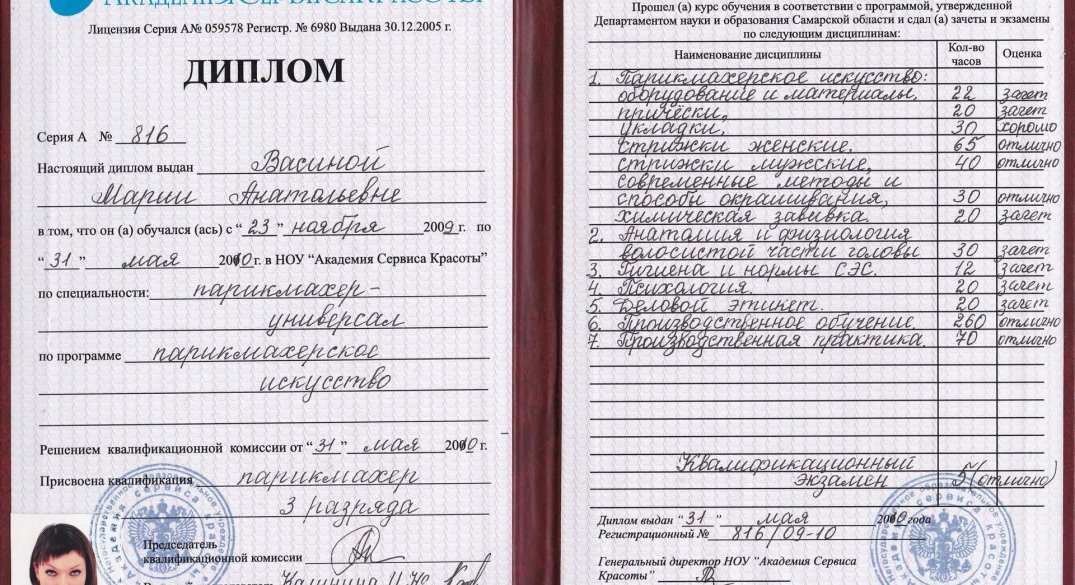 Лицензия Серия А№ 059578 Регистр. № 6980 Выдана 30.12.2005 г.
ДИПЛОМ
Серия А № 816
Настоящий диплом выдан Васиной
Марии Анатольевне
в том, что он (а) обучался (ась) с “23” ноября 2009 г. по
“31” мая 2010 г. в НОУ “Академия Сервиса Красоты”
по специальности: парикмахер-
универсал
по программе парикмахерское
искусство
Решением квалификационной комиссии от “31” мая 2010 г.
Присвоена квалификация парикмахер
3 разряда
Председатель
квалификационной комиссии
Прошел (а) курс обучения в соответствии с программой, утвержденной
Департаментом науки и образования Самарской области и сдал (а) зачеты и экзамены
по следующим дисциплинам:
Наименование дисциплины Кол-во часов Оценка
1. Парикмахерское искусство:
оборудование и материалы, 22 зачет
причёски, 20 зачет
укладки, 30 хорошо
стрижки женские, 65 отлично
стрижки мужские, 40 отлично
современные методы и
способы окрашивания, 30 отлично
химическая завивка. 20 зачет
2. Анатомия и физиология
волосистой части головы 30 зачет
3. Гигиена и нормы СЭС. 12 зачет
4. Психология. 20 зачет
5. Деловой этикет. 20 зачет
6. Производственное обучение 260 отлично
7. Производственная практика. 70 отлично
Квалификационный
экзамен 5 (отлично)
Диплом выдан “31” мая 2010 года
Регистрационный № 816/09-10
Генеральный директор НОУ “Академия Сервиса
Красоты”